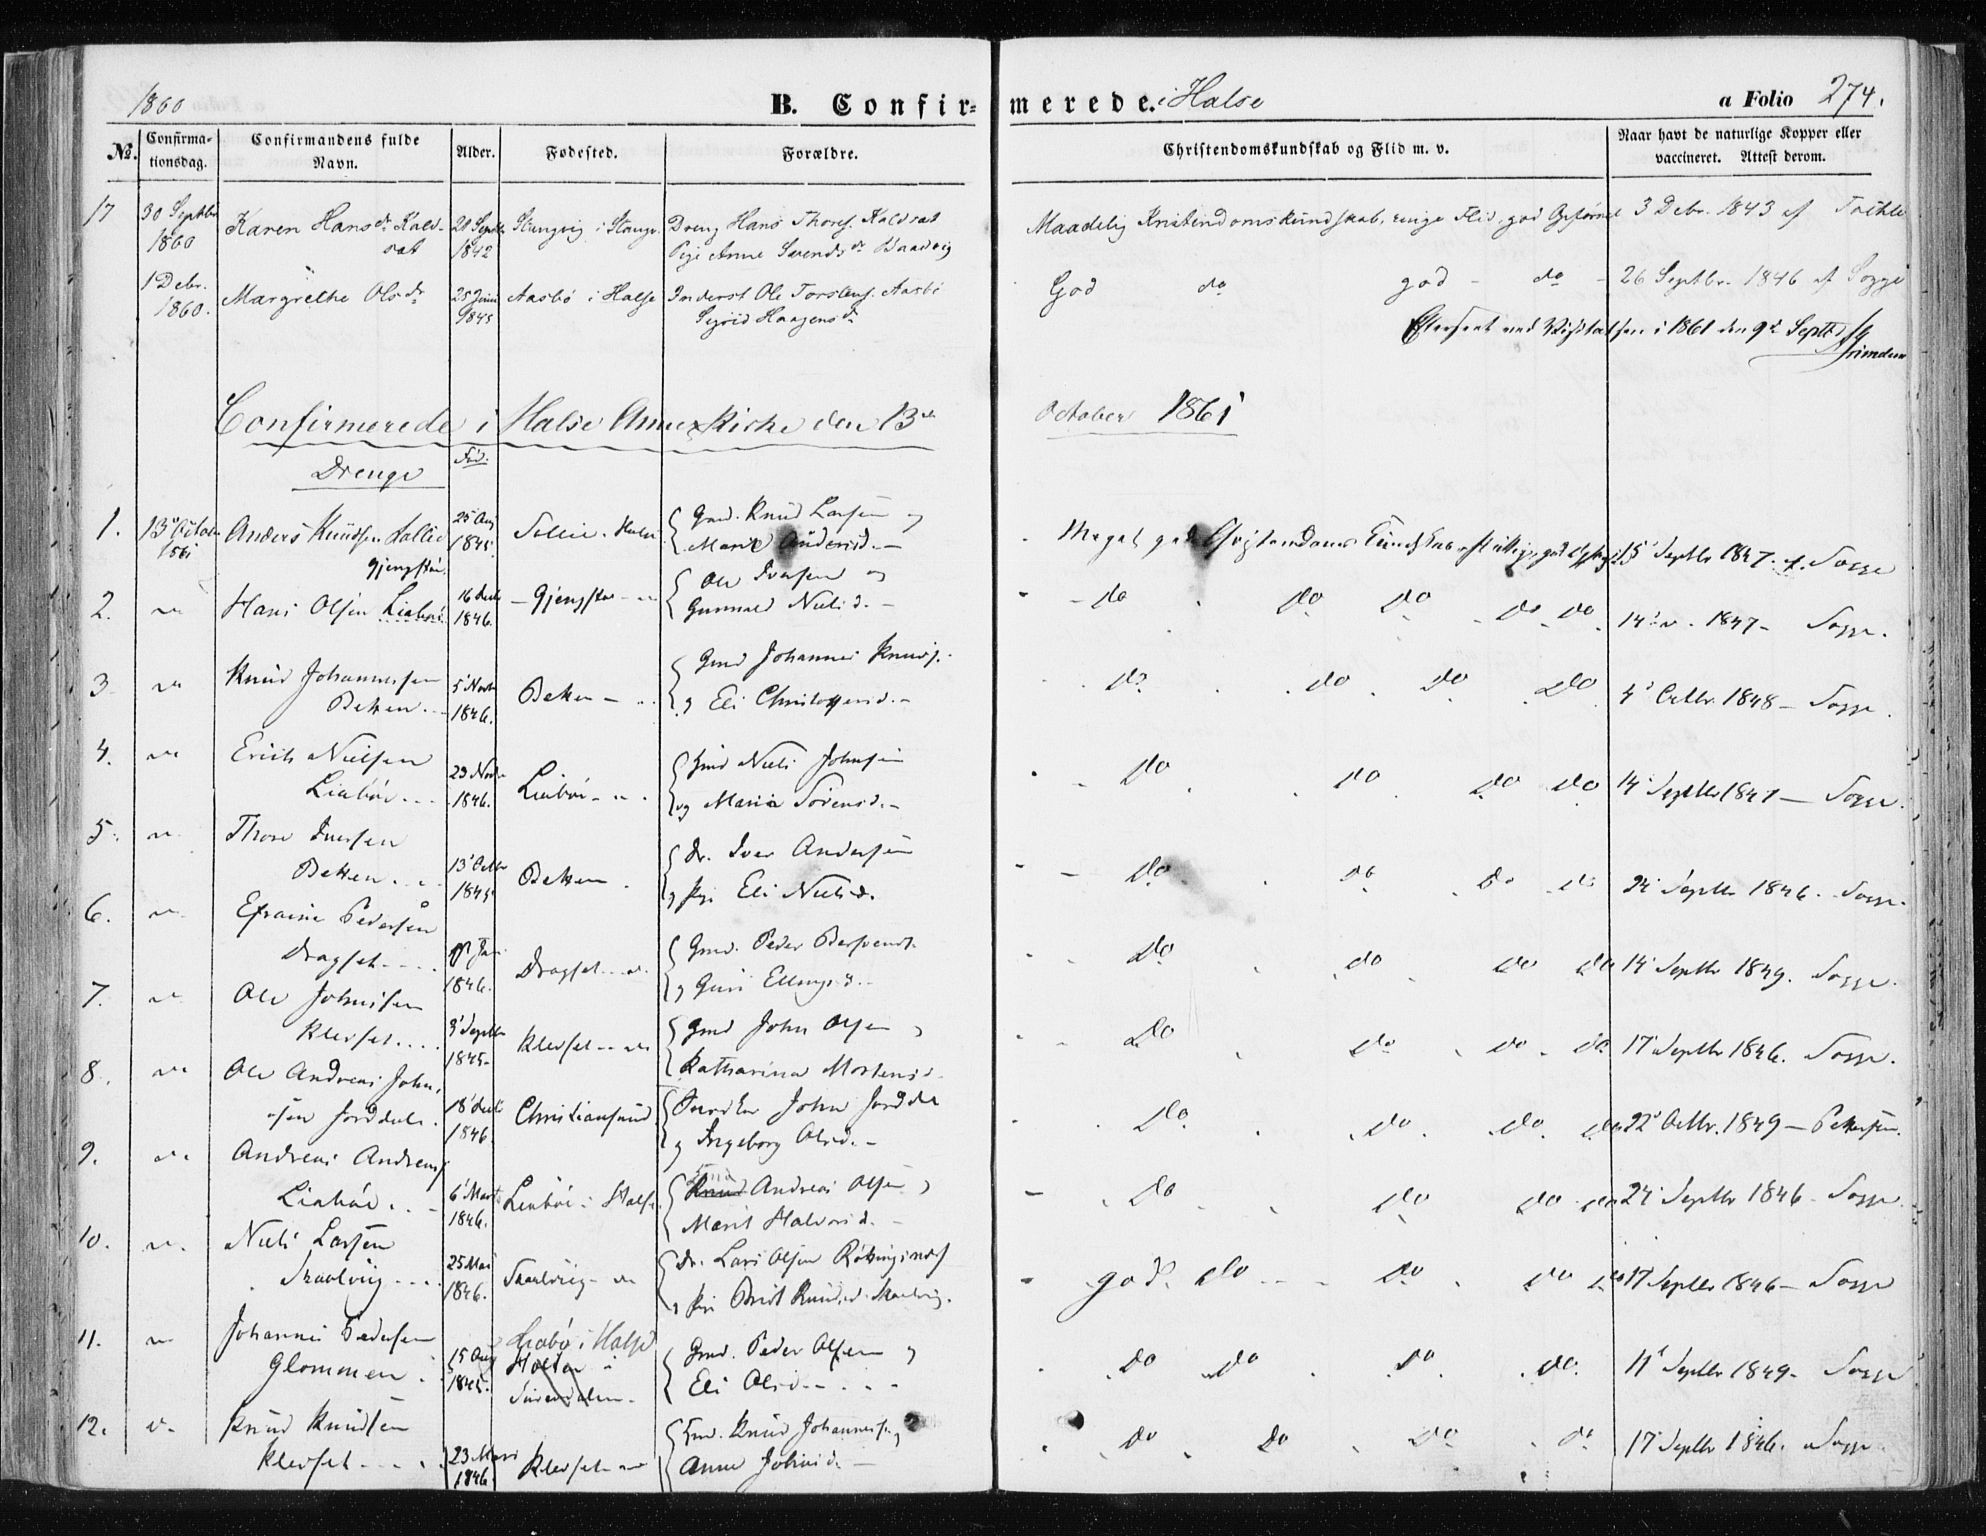 1860
B. Confir-
merede. i Halse
a Folio 274.
No.
Confirma-
tionsdag.
Confirmandens fulde
Navn.
Alder.
Fødested.
Forældre.
Christendomskundskab og Flid m. v.
Naar havt de naturlige Kopper eller
vaccineret. Attest derom.
17 30 Septbr 1860
Karen Hansdr. Kald-
sæt
20 Septbr 1842
Stangvig i Stangv.
Dreng Hans Thores. Kaldsæt
Pige Anne Svendsdr
Maadelig Kristendomskundskab, ringe Flid, god Opførsel
3 Debr. 1843 af
1 Debr. 1860.
Margrethe Olsdr
25 Juni 1845
Aasbö i Halse
Inderst Ole Torstens. Aasbö
Sigrid Haagensdr
God do god - do -
26 Septbr. 1846 af Sogge
Efterseet ved Visitatsen i 1861 den 9de Septbr
Confirmerede i Halse Annex Kirke den 13de
October 1861
Drenge
Fød.
1. 13 October 1861
Anders Knudsen Sollie
25 Aug 1845
Sollie Halse
Gmd. Knud Larsen og
Marit Andersd. -
Meget god Christendoms Kundskab, flittig, god Opførsel
15 Septbr 1847. af Sogge
Gjengstøe.
2.
Hans Olsen Liabøe
16 Decb 1846.
Gjengstøe
Ole Iversen og
Gunnild Nielsd. -
do do do do do
14 - 1847 - Sogge.
3.
Knud Johannessen
Betten. -
5 Novb 1846.
Betten -
Gmd Johannes Knuds.
og Eli Christophersd. -
do do do do
4 Octbr. 1848 - Sogge.
4.
Erick Nielsen
Liabøe. . -
29 Novb 1846.
Liabøe - - .
Gmd Niels Johnsen
og Maria Sørensd. -
do do do do
14 Septbr 1847 - Sogge.
5.
Thore Iversen
Betten . .
13 Octbr 1845
Betten .
Dr. Iver Andersen
og Pige Eli Nielsd.
do do do do
24 Septbr 1846. Sogge.
6.
Efraim Pedersen
Dragset - - . .
Jan 1846.
Dragset - -
Gmd. Peder
og Guri Ellingsd. -
do do do do
14 Septbr 1849. Sogge.
7.
Ole Johnsen
Klevset . . . .
9 Septbr 1845.
Klevset - -
Gmd John Olsen og
Katharina Mortensd.
do do do do
17 Septbr 1846. Sogge.
8.
Ole Andreas John-
sen Jorddal .
18 1846.
Christiansund.
John Jorddal
og Ingeborg Olsd. -
do do do do
22 Octbr. 1849 - Pettersen.
9.
Andreas Andreas.
Liabøe . . -
6 Marts 1846.
Liabøe i Halse
Gmd Andreas Olsen og
Marit Halvorsd. -
do do do do
24 Septbr 1846 - Sogge
10.
Niels Larsen
Skaalvig - - . .
25 Mai 1846.
Skaalvig -
Dr. Lars Olsen
og Pige Brit Knudsd. Skaalvig.
god do - - do do do
17 Septbr 1846 - Sogge
11.
Johannes Pedersen
Glommen .
15 Aug 1845.
Liabø i Halse
Holten i
Surendalen -
Gmd. Peder Olsen og
Eli Olsd. - . - -
do do do do
11 Septbr 1849 - Sogge
12.
Knud Knudsen
Klevset - - . .
23 Marts 1846.
Klevset -
Gmd. Knud Johannes. og
Anne Johnsd. -
do do do do
17 Septbr 1846. Sogge.